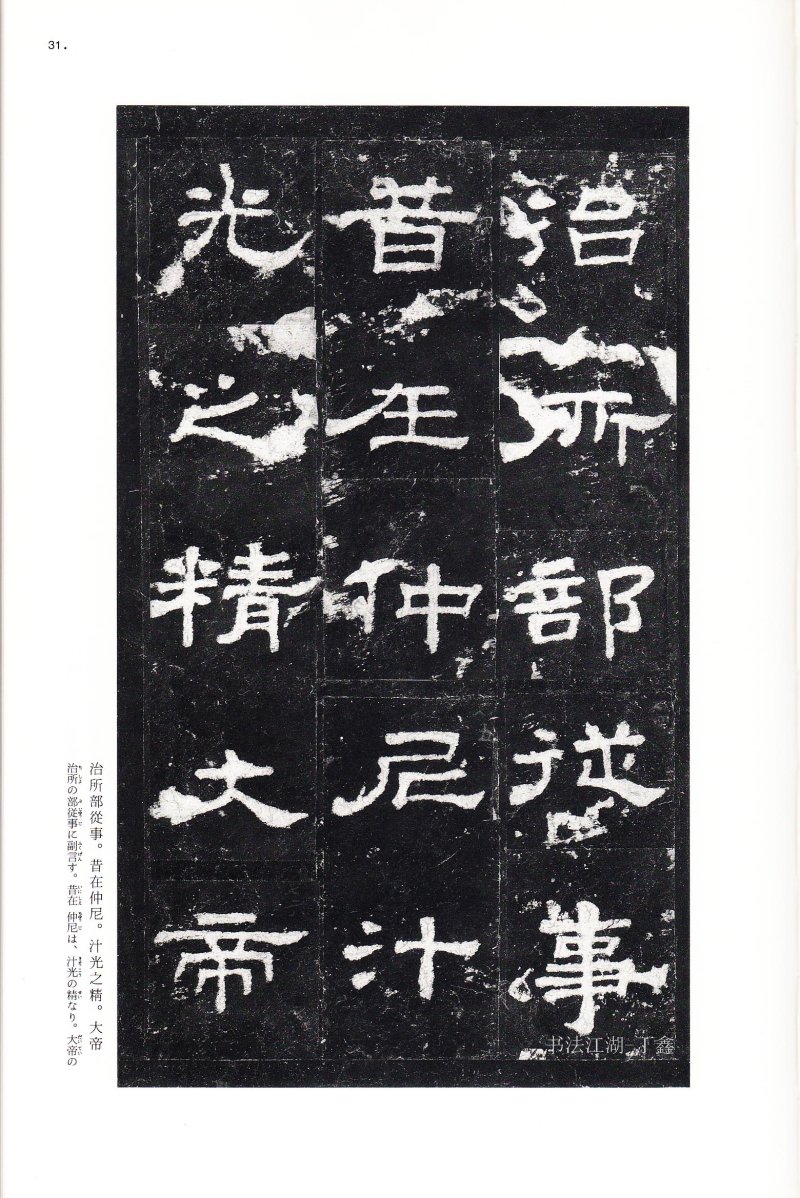 31.
治所部從事
昔在仲尼汁
光之精大帝
治所部從事。昔在仲尼。汁光之精。大帝
治所の部從事に副言す。昔在仲尼は、汁光の精なり。大帝の
书法江湖_丁鑫